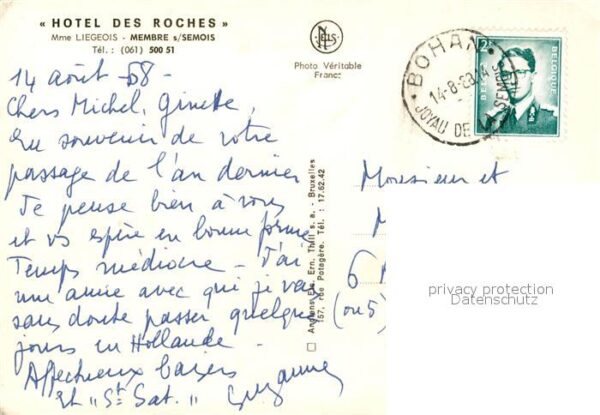 « HOTEL DES ROCHES »
Mme LIEGEOIS - MEMBRE s/SEMOIS
Tél. : (061) 500 51
NELS
Photo Véritable
France
BOHAN
14-8-68 14
JOYAU DE LA SEMOIS
2F
BELGIQUE
BELGIË
14 août - 68 -
Chers Michel, Ginette,
En souvenir de votre
passage de l'an dernier
Je pense bien à vous
et vs espère en bonne forme
Temps médiocre - J'ai
une amie avec qui je vais
sans doute passer quelques
jours en Hollande.
Affectueux baisers
et "St Sat." Suzanne
Anciens Ets. Ern. Thill s. a. - Bruxelles
157, rue Potagère. Tél. : 17.62.42
Monsieur et
M
6
(ou 5)
privacy protection
Datenschutz